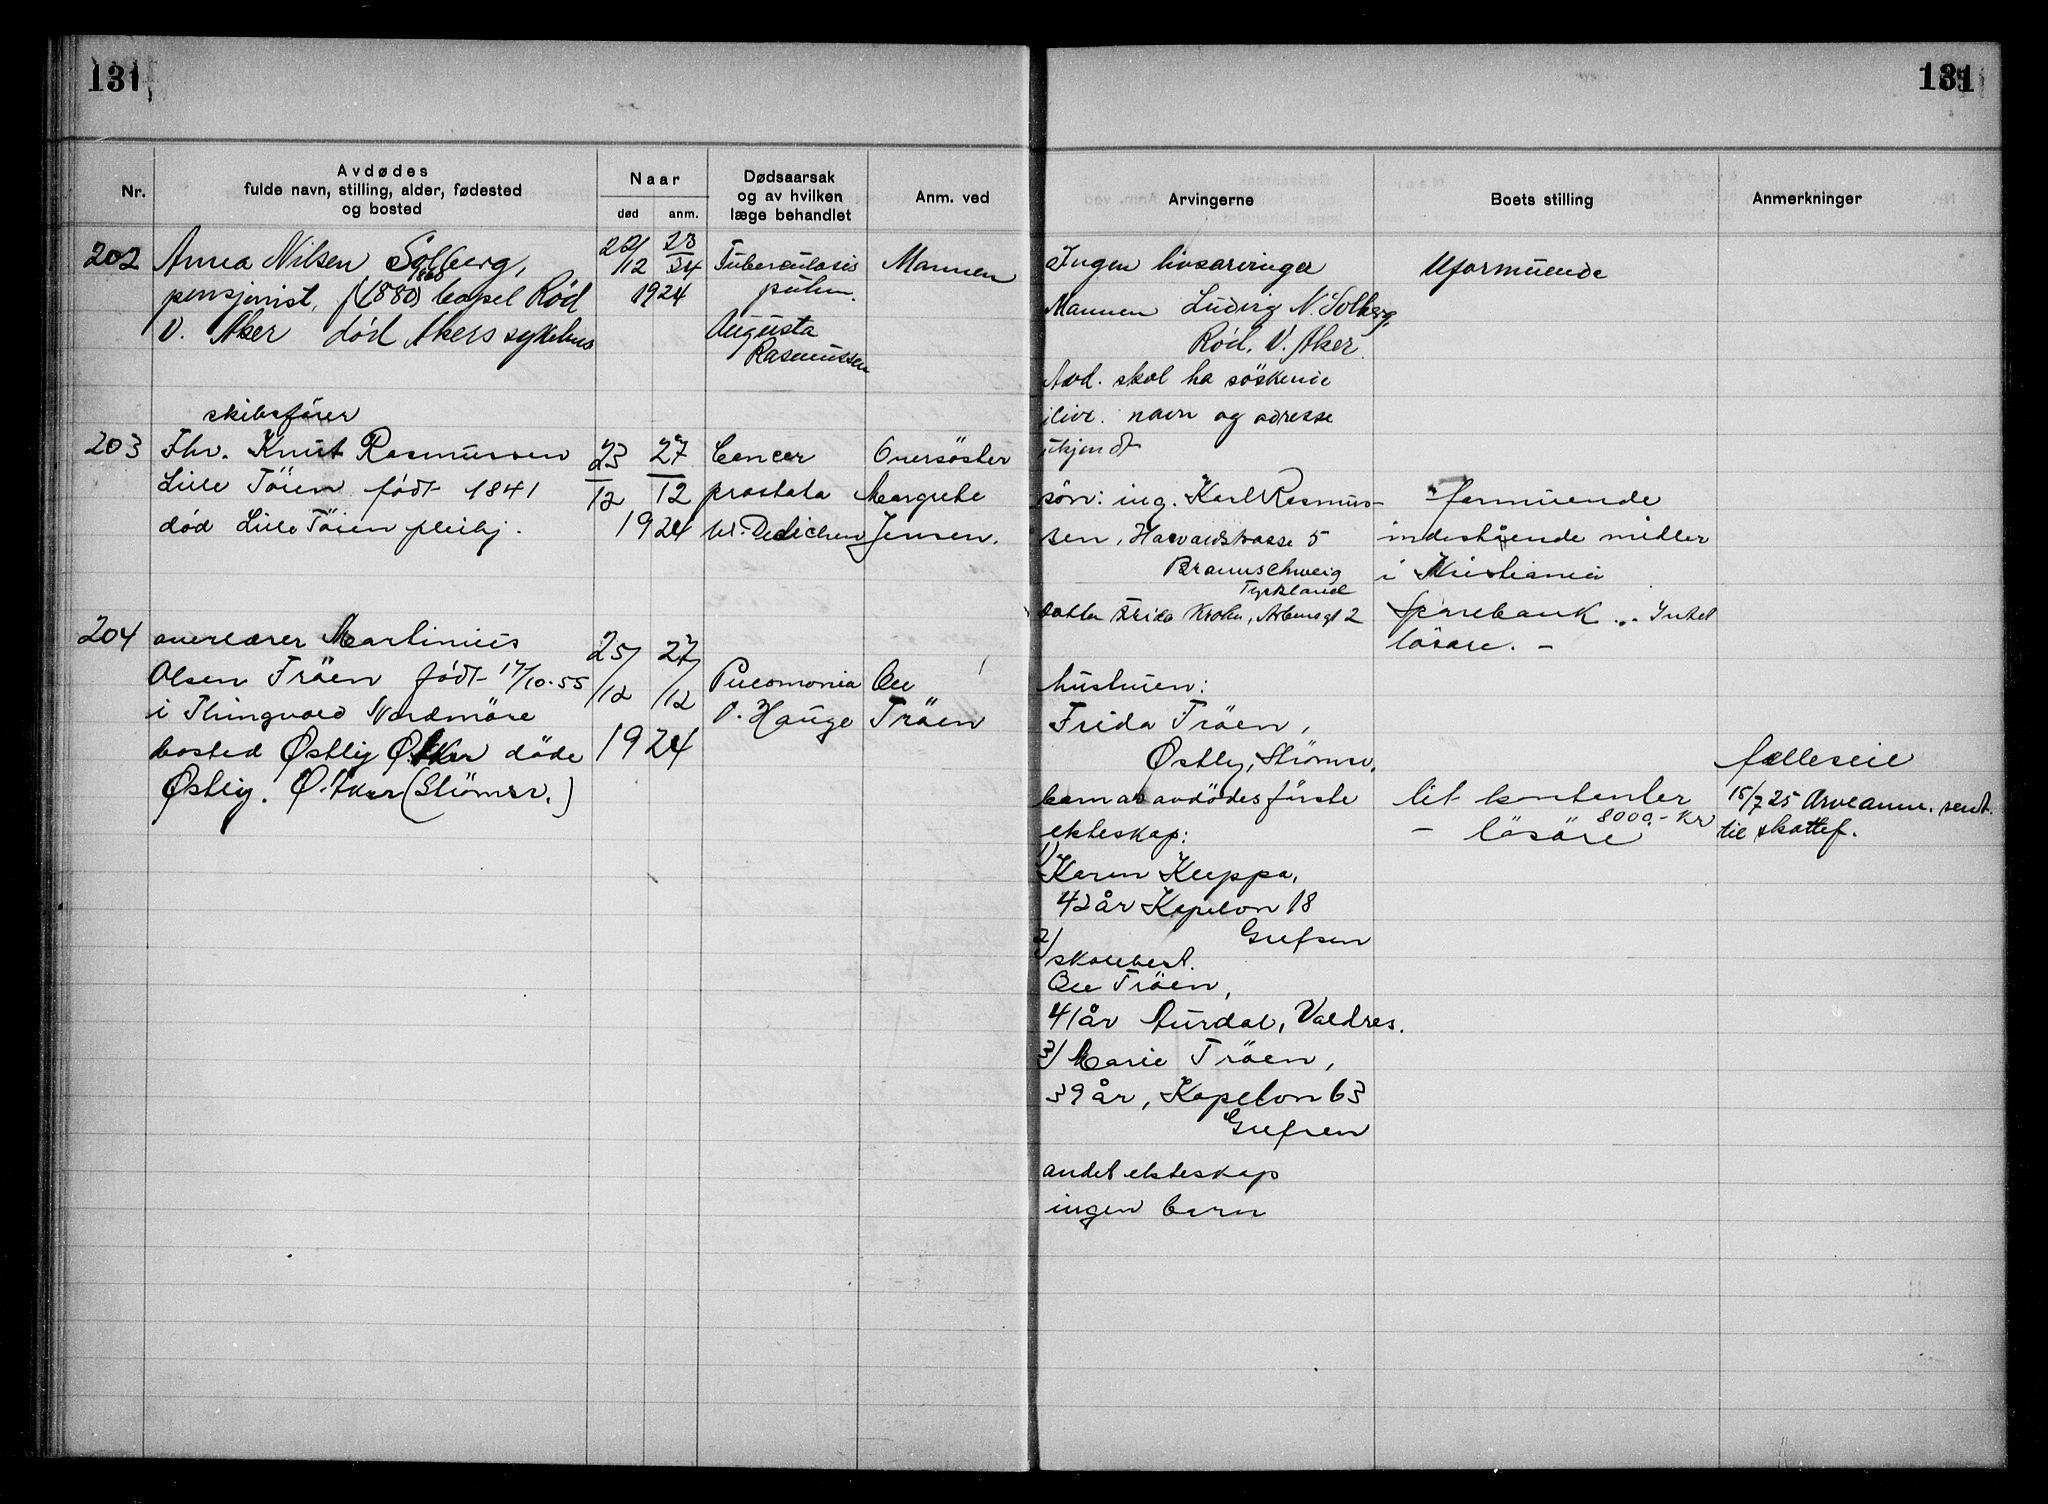 131
131
Nr.
Avdødes
fulde navn, stilling, alder, fødested
og bosted
Naar
død
anm.
Dødsaarsak
og av hvilken
læge behandlet
Anm. ved
Arvingerne
Boets stilling
Anmerkninger
202
Anna Nilsen Solberg,
pensjonist, f. (1880) bopel Rød
V. Aker død Akers sykehus
1924
Tuberculosis
pulm.
Augusta
Rasmussen
Mannen
Ingen livsarvinger
Mannen Ludvig N. Solberg,
Rød, V. Aker
Avd. skal ha söskende
ilive. navn og adresse
ukjendt
Uformuende
203
skibsfører
Fhv. Knut Rasmussen
Lille Töien født 1841
død Lille Töien pleihj.
23/12
27/12
1924
Cancer
prostata
W. Dedichen
Oversöster
Margrete
Jensen.
sön: ing. Karl Rasmus-
sen, Havardstrasse 5
Braunschweig
Tyskland
datter Frida Krohn, Arbinsgt 2
formuende
indestående midler
i Kristiania
Sparebank ... Intet
lösöre. -
204
overlærer Martinius
Olsen Tröen født 17/10-55
i Thingvold Nordmöre
bosted Østliy Ø. Aker döde
Østliy. Ø. Aker (Strömsv.)
25/12
27/12
1924
Pneomonia
O. Hauge
Ole
Tröen
hustruen:
Frida Tröen,
Østliy, Strömsv.
barn av avdödes förste
ekteskap:
1) Karen Kleppa,
42 år Kapelvn 18
Grefsen
2) skolebest.
Ole Tröen,
41 år Aurdal, Valdres.
3) Marie Tröen,
39 år, Kapelvn 63
Grefsen
andet ekteskap
ingen barn
lit kontanter
8000.- Kr
- lösöre
fælleseie
15/7 25 Arveanm. sendt
til skattef.